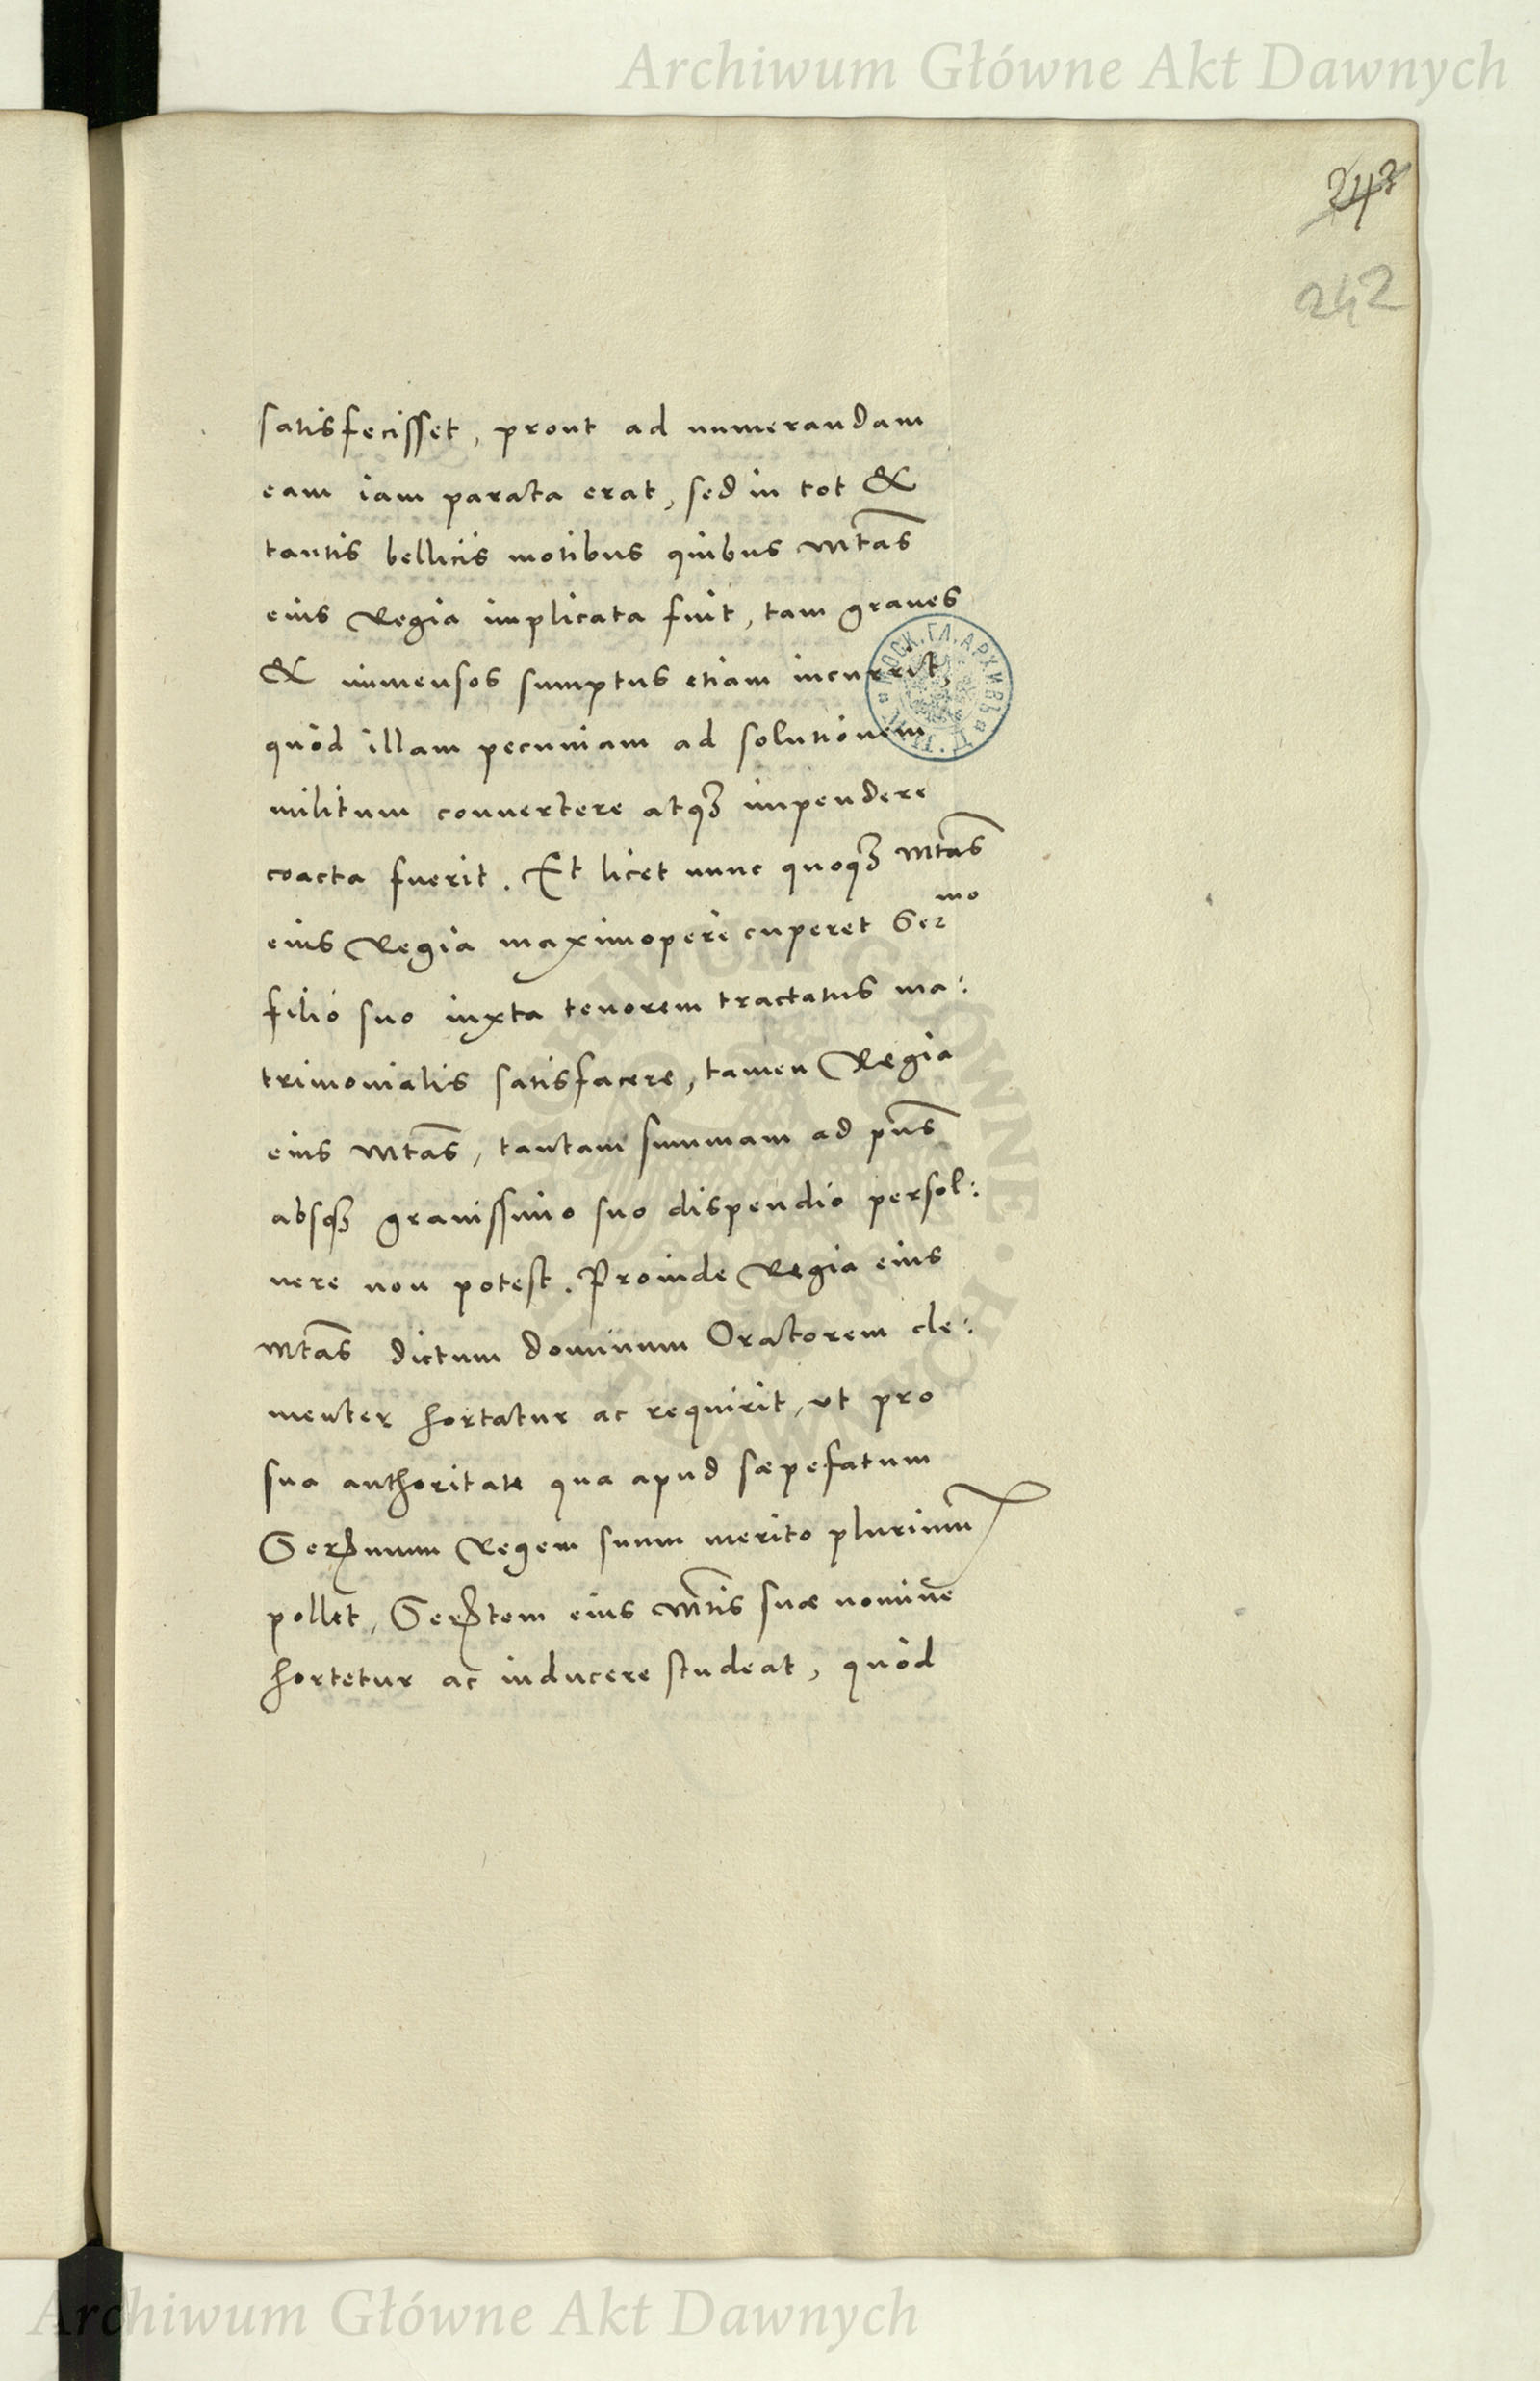 Archiwum Główne Akt Dawnych
243
242
satisfecisset, prout ad numerandam
eam iam parata erat, sed in tot &
tantis bellicis motibus quibus Mtas
eius Regia implicata fuit, tam graues
& immensos sumptus etiam incurrit,
quòd illam pecuniam ad solutionem
militum conuertere atqꝫ impendere
coacta fuerit. Et licet nunc quoqꝫ Mtas
eius Regia maximopere cuperet Sermo
filio suo iuxta tenorem tractatus ma:
trimonialis satisfacere, tamen Regia
eius Mtas, tantam summam ad pns
absqꝫ grauissimo suo dispendio persol:
uere non potest. Proinde Regia eius
Mtas dictum dominum Oratorem cle:
menter hortatur ac requirit, vt pro
sua authoritate qua apud sæpefatum
Serᵐmum Regem suum merito plurimum
pollet, Serᵗtem eius Mtis suæ nomine
hortetur ac inducere studeat, quòd
Archiwum Główne Akt Dawnych